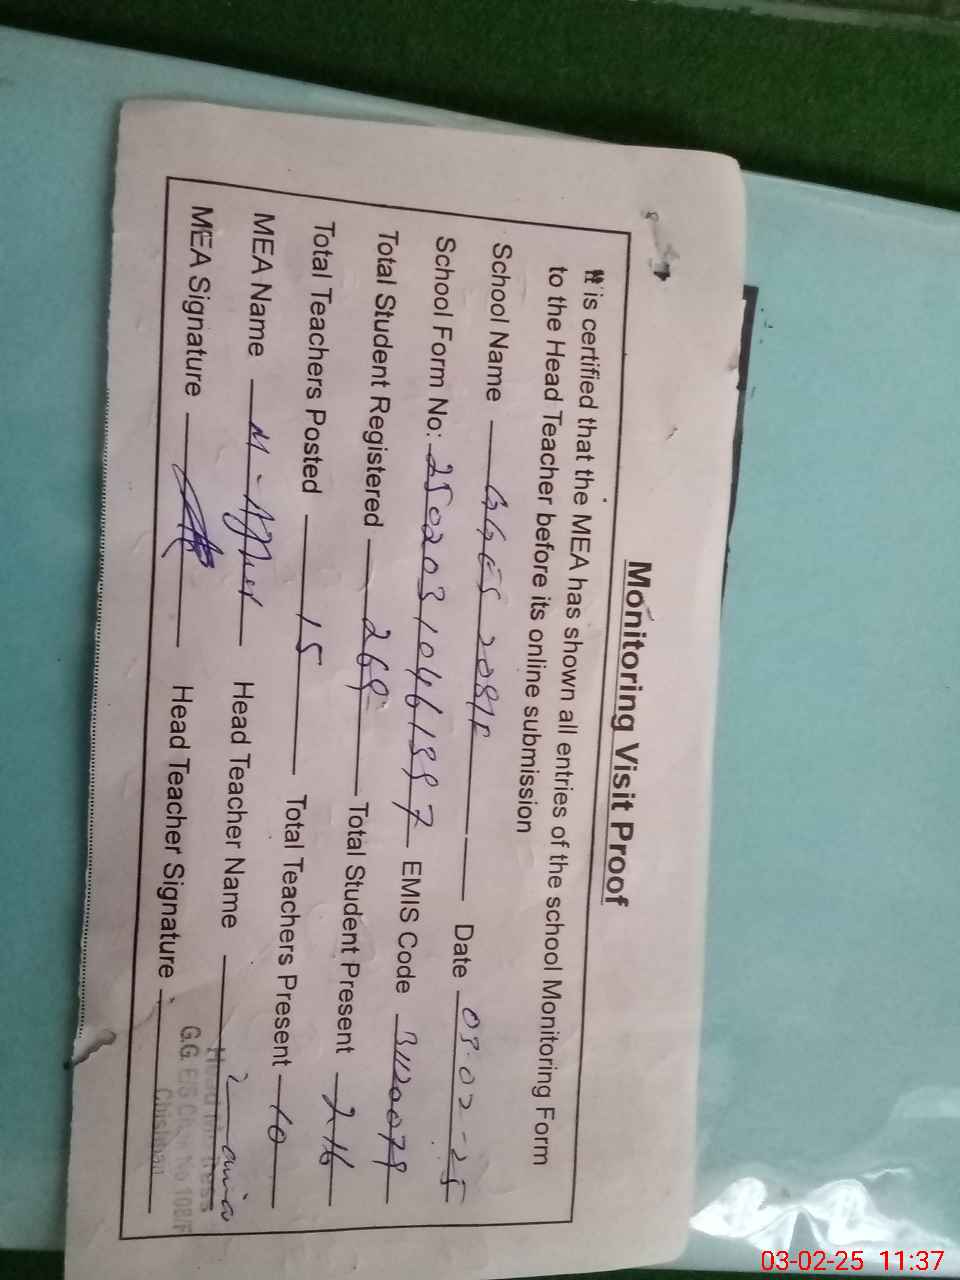 Monitoring Visit Proof
It is certified that the MEA has shown all entries of the school Monitoring Form
to the Head Teacher before its online submission
School Name GGES 108/F Date 03-02-25
School Form No: 25020310461397 EMIS Code 31120079
Total Student Registered 269 Total Student Present 216
Total Teachers Posted 15 Total Teachers Present 10
MEA Name Head Teacher Name
MEA Signature Head Teacher Signature
Head Mistress
G.G. E/S Chak No 108/F
Chishtian
03-02-25 11:37